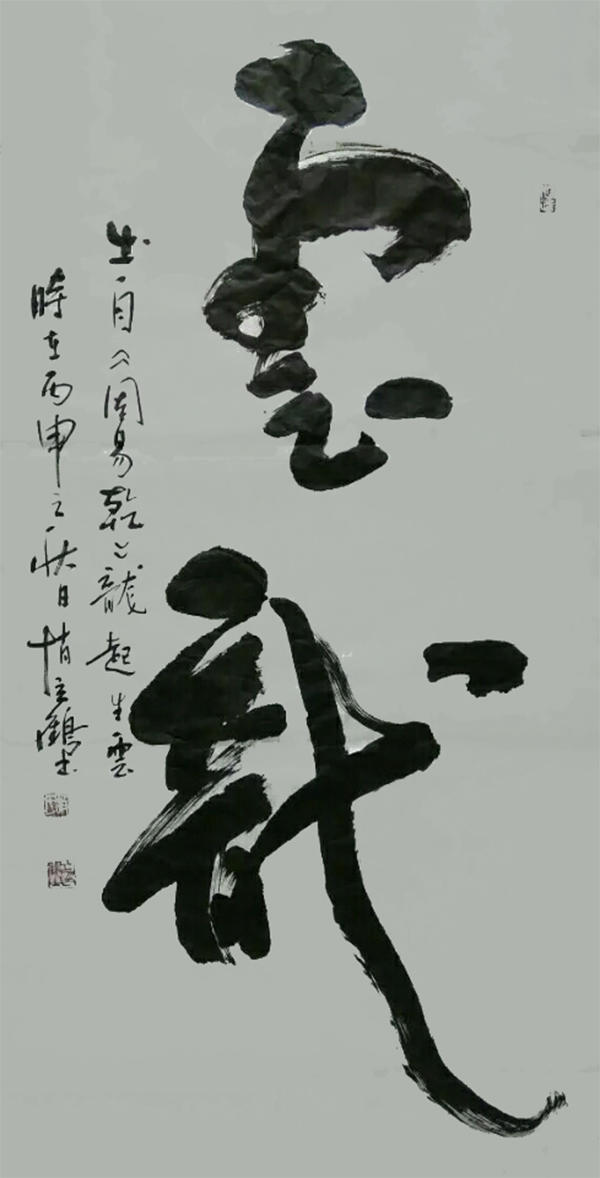 雲龍
出自《周易乾》龍起生雲
時在丙申之秋日惜玄鶴书